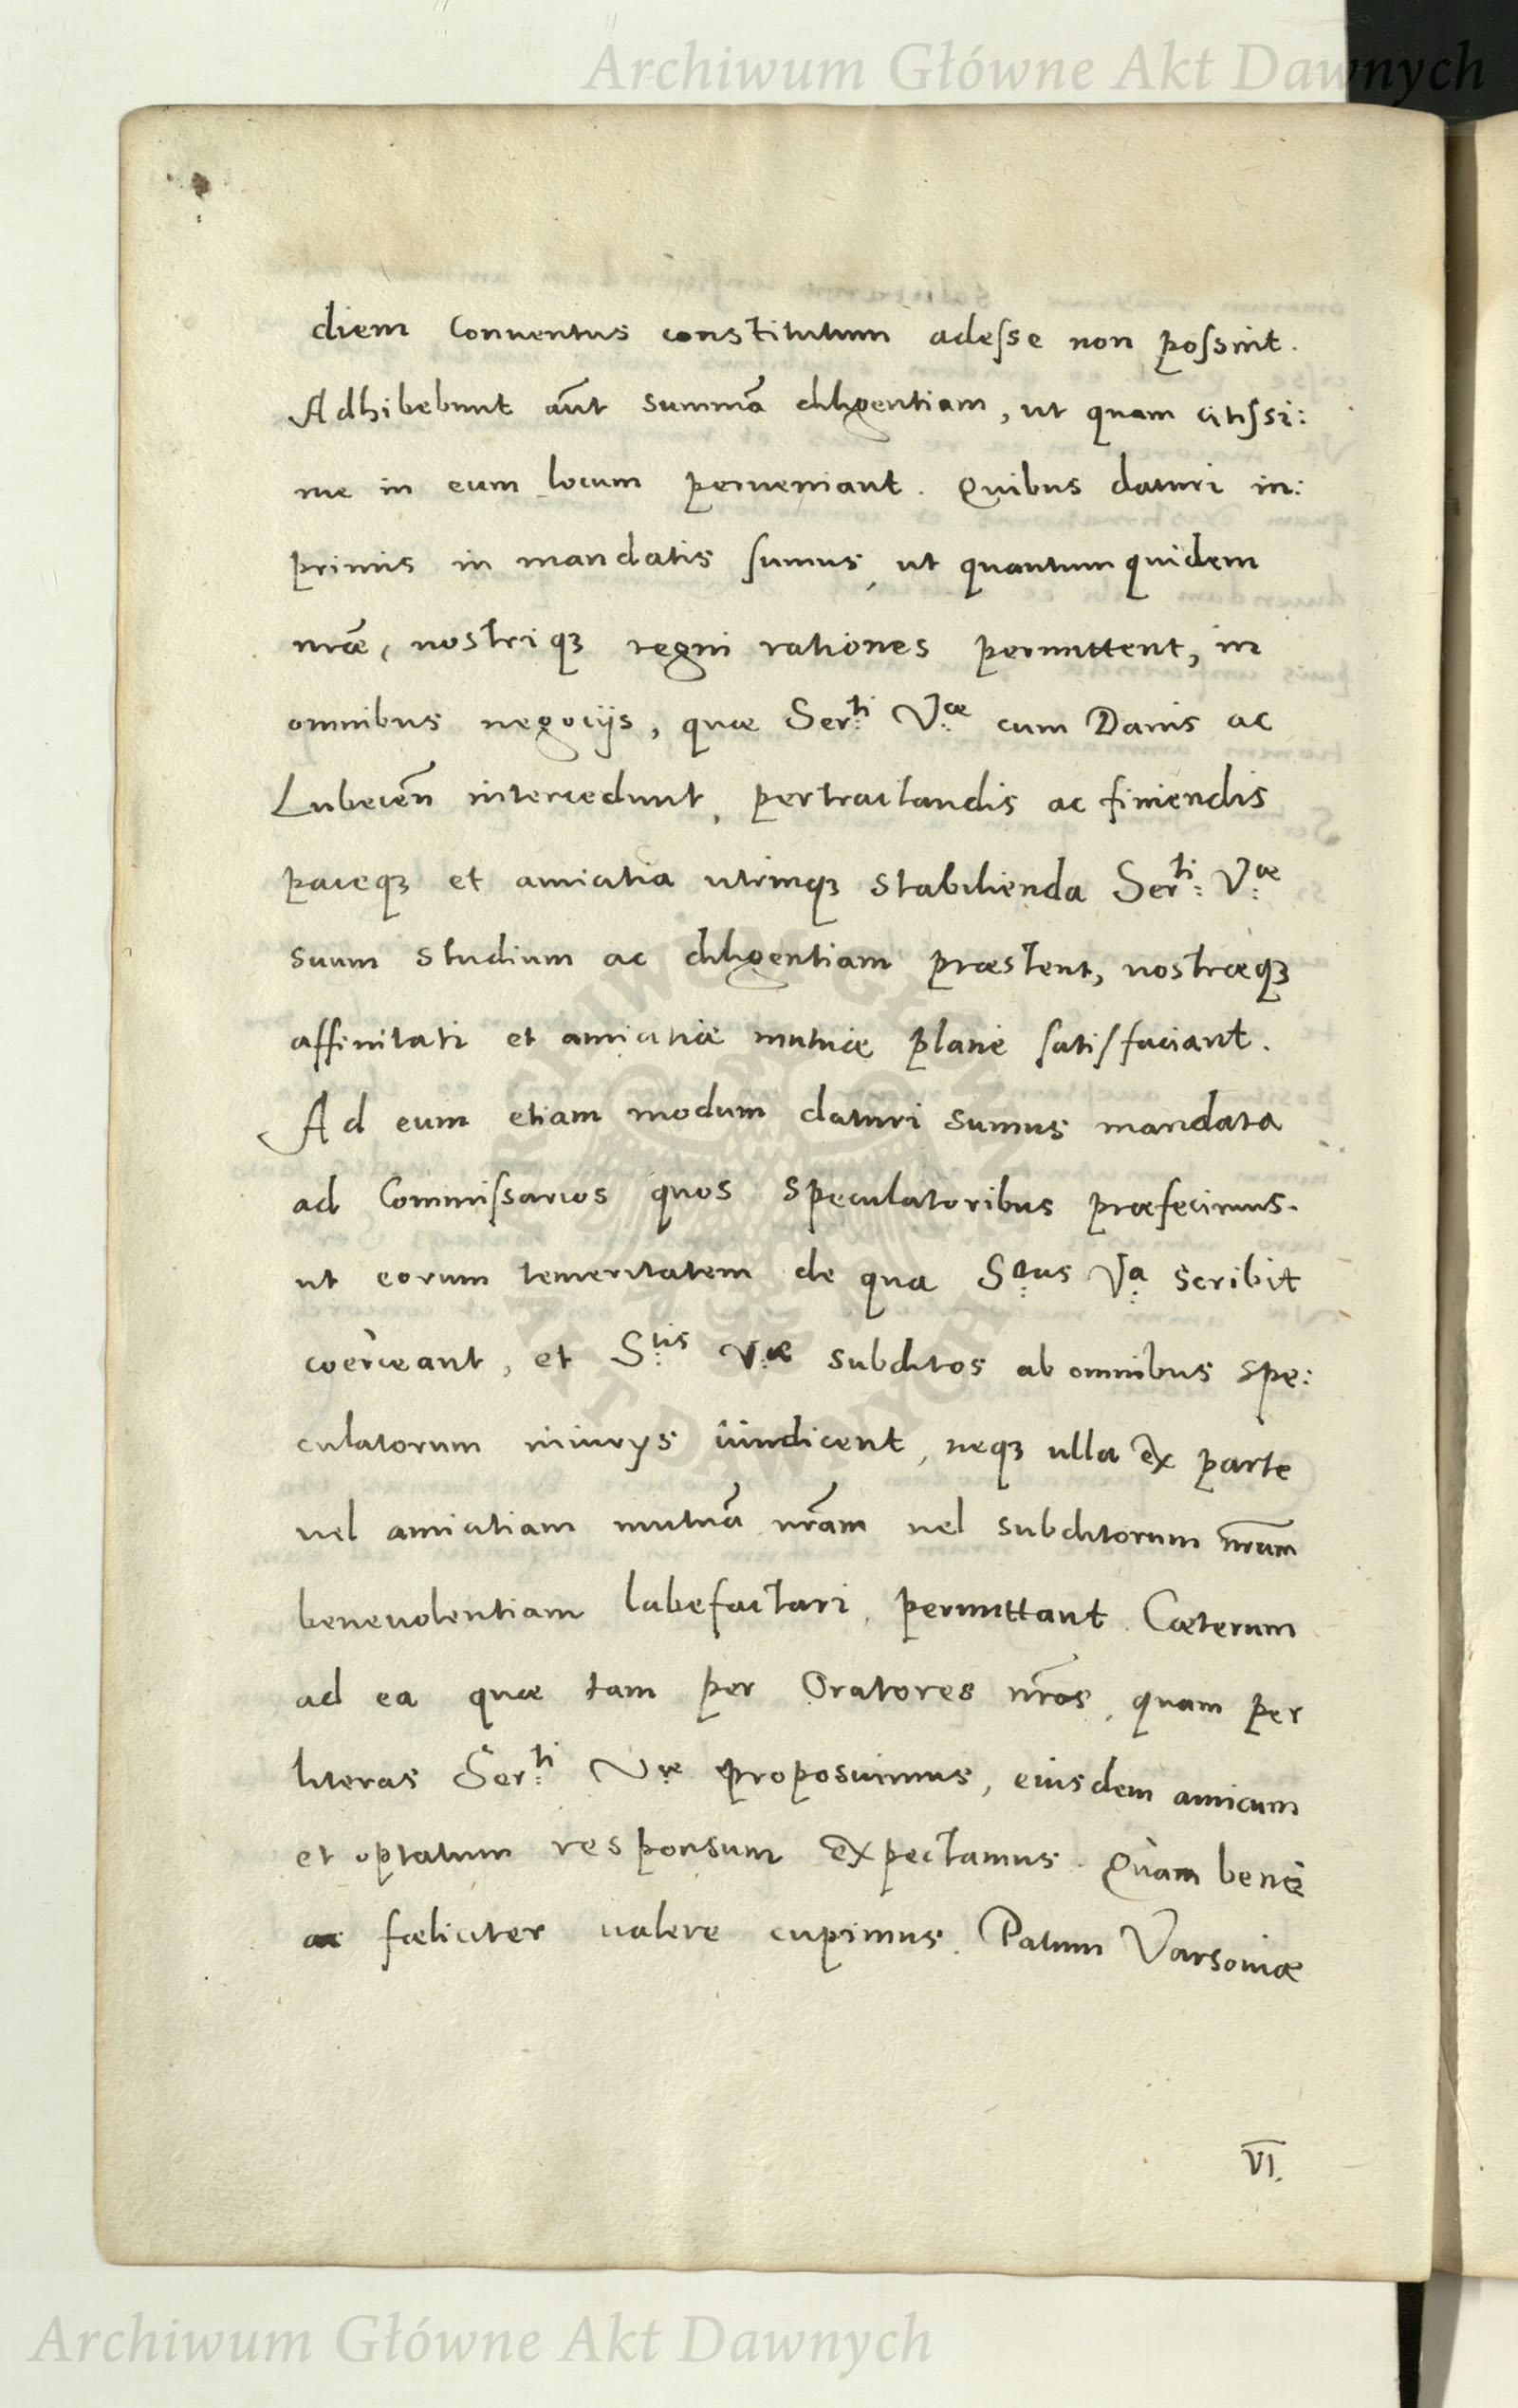 Archiwum Główne Akt Dawnych
diem Conuentus constitutum adeſse non poſsint.
Adhibebunt aũt summã diligentiam, ut quam citiſsi:
me in eum locum perueniant. Quibus daturi in:
primis in mandatis ſumus, ut quantum quidem
nr̃æ, nostriqꝫ regni rationes permittent, in
omnibus negocijs, quæ Ser:ti V:æ cum Danis ac
Lubeceñ intercedunt, pertractandis ac finiendis
paceqꝫ et amicitia utrinqꝫ stabilienda Ser:ti V:æ
suum studium ac diligentiam præstent, nostræqꝫ
affinitati et amicitiæ mutuæ planè ſatiſfaciant.
Ad eum etiam modum daturi sumus mandata
ad Commiſsarios quos speculatoribus præfecimus.
ut eorum temeritatem de qua S:tas V:a scribit
coërceant, et S:tis V:æ subditos ab omnibus spe:
culatorum iniurys uindicent, neqꝫ ulla ex parte
uel amicitiam mutuã nr̃am uel subditorum nr̃um
beneuolentiam labefactari, permittant. Cæterum
ad ea quæ tam per Oratores nr̃os, quam per
literas Ser:ti V:æ proposuimus, eiusdem amicum
et optatum responsum expectamus. Quam benè
ac fœliciter ualere cupimus. Datum Varsouiæ
VI.
Archiwum Główne Akt Dawnych